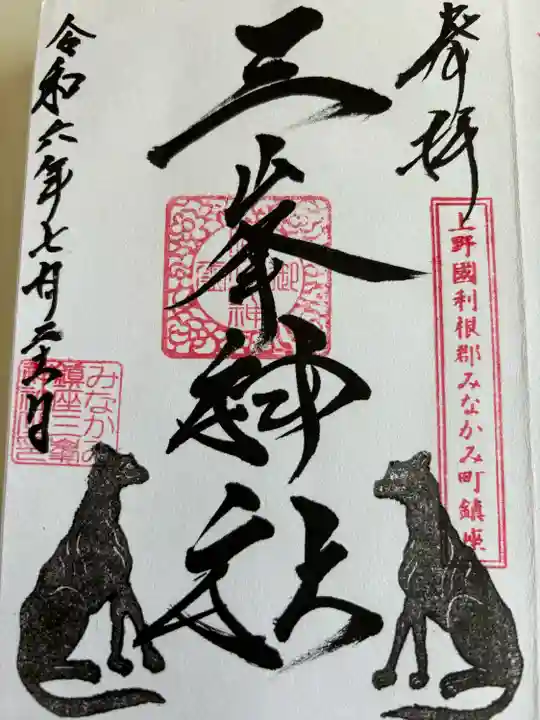 奉拝
上野國利根郡みなかみ町鎮座
三峯神社
令和六年七月二十六日
みなかみ
鎮座三峯